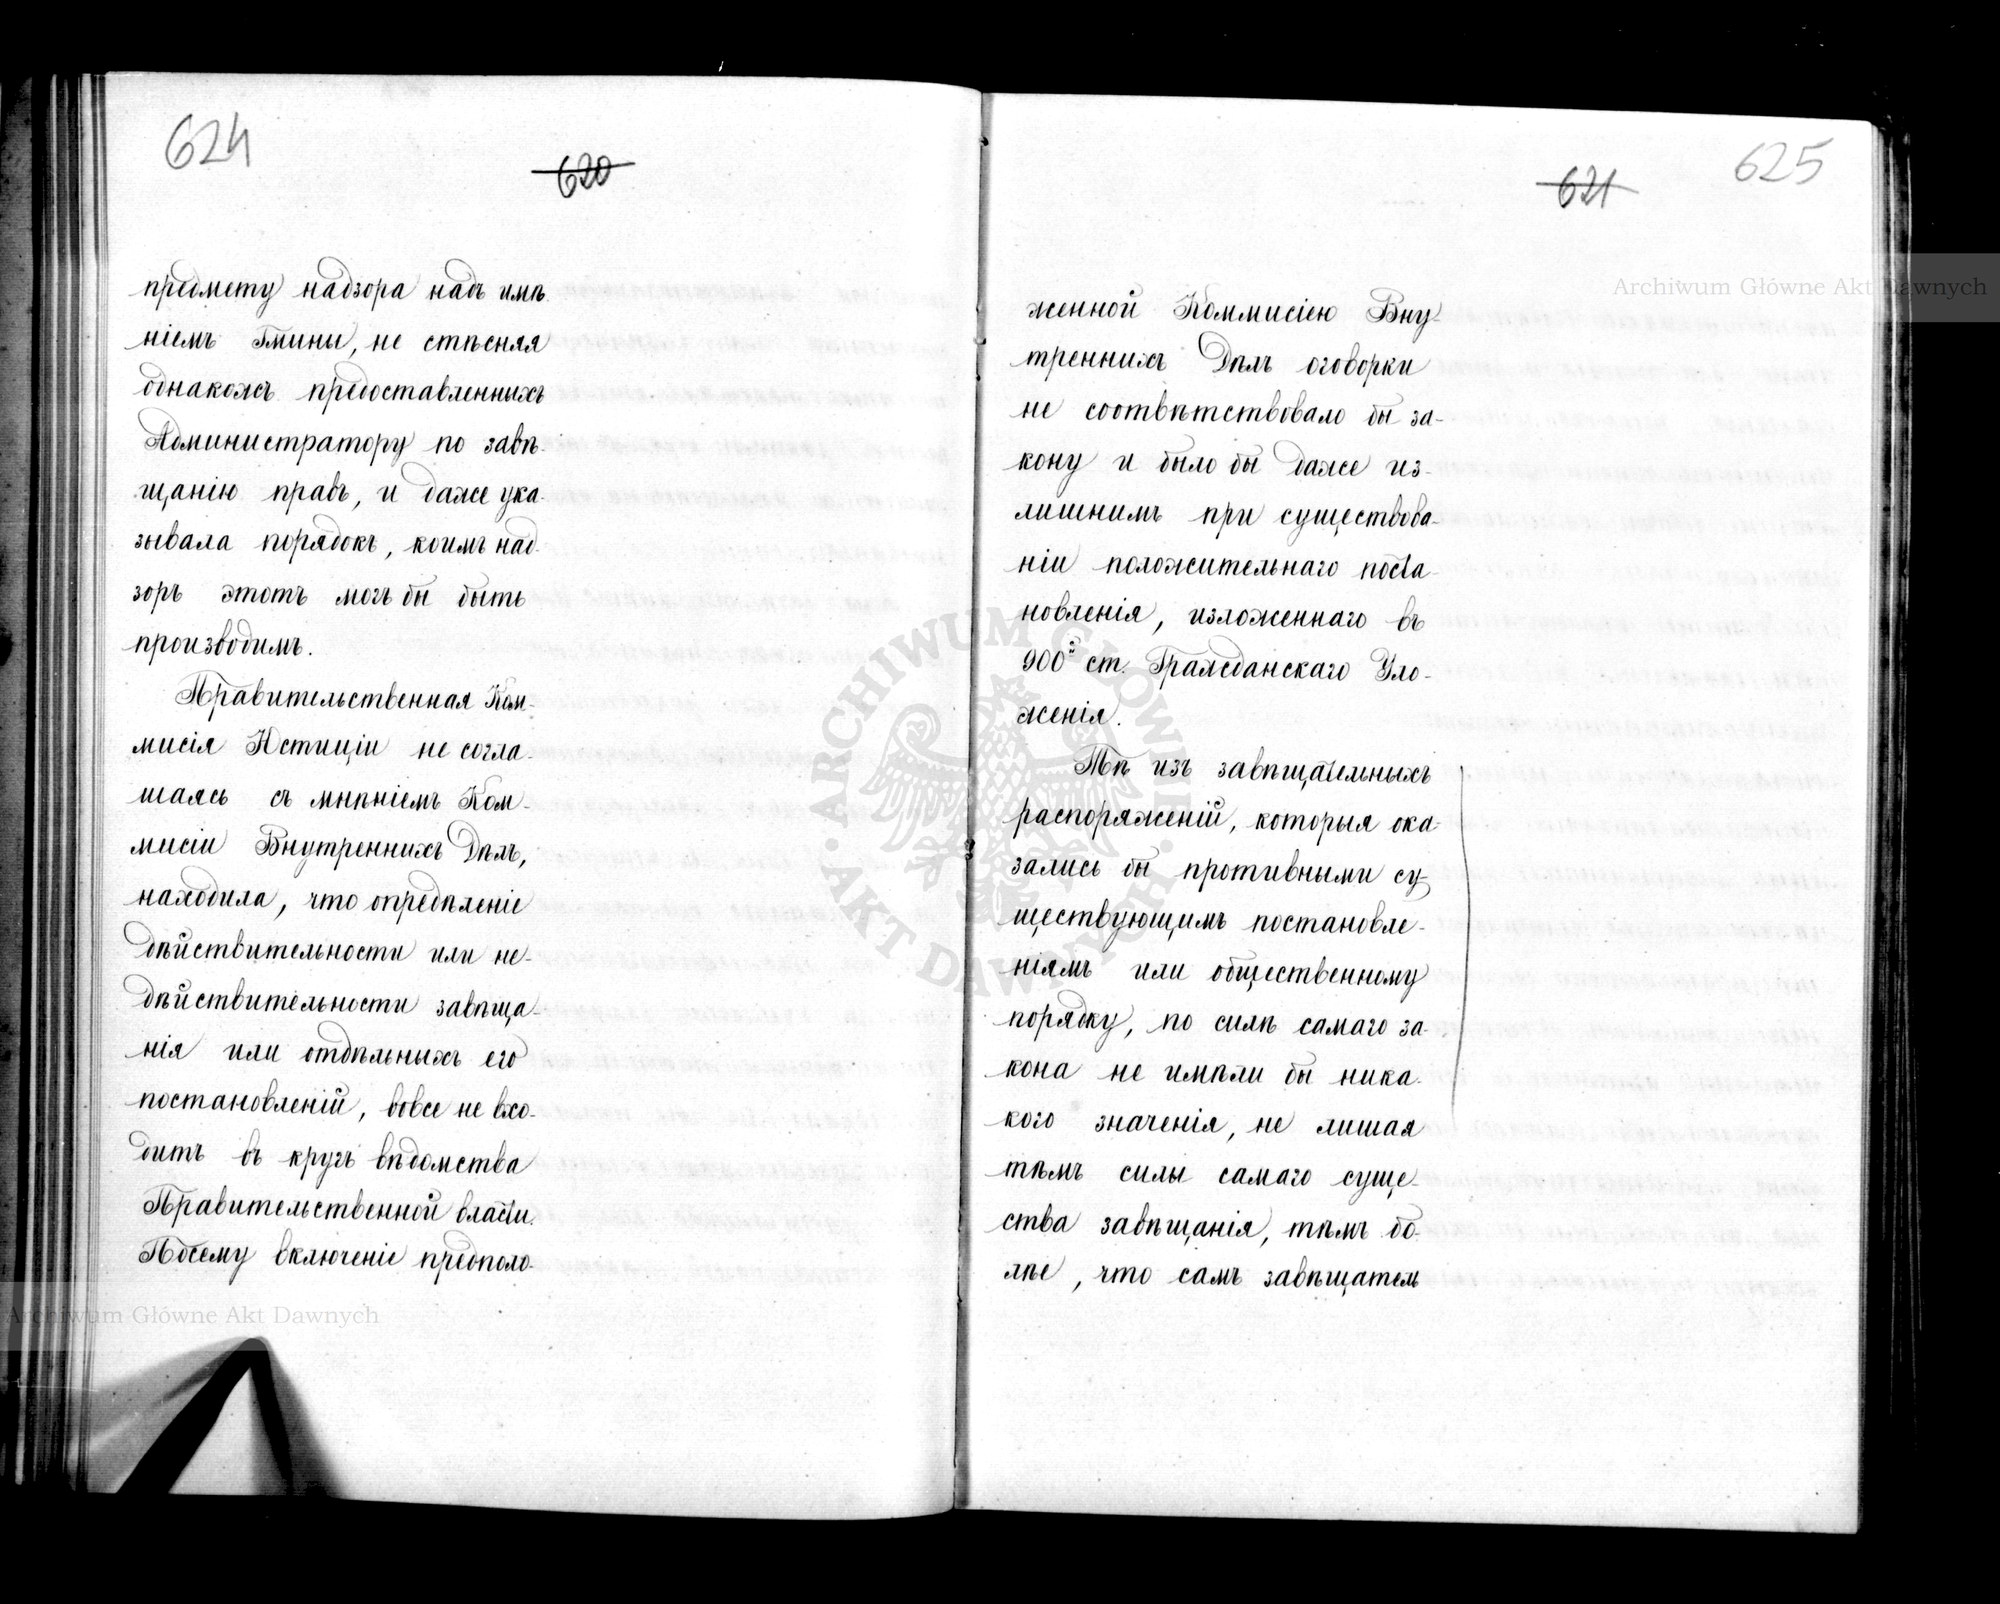 624
620
предмету надзора надъ имѣ-
ніемъ Гмины, не стѣсняя
однакожъ предоставленныхъ
Администратору по завѣ-
щанію правъ, и даже ука-
зывала порядокъ, коимъ над-
зоръ этотъ могъ бы быть
производимъ.
Правительственная Ком-
мисія Юстиціи не согла-
шаясь съ мнѣніемъ Ком-
мисіи Внутреннихъ Дѣлъ,
находила, что опредѣленіе
дѣйствительности или не-
дѣйствительности завѣща-
нія или отдѣльныхъ его
постановленій, вовсе не вхо-
дитъ въ кругъ вѣдомства
Правительственной власти.
Посему включеніе предполо-
621
625
женной Коммисіею Вну-
треннихъ Дѣлъ оговорки
не соотвѣтствовало бы за-
кону и было бы даже из-
лишнимъ при существова-
ніи положительнаго поста-
новленія, изложеннаго въ
900й ст. Гражданскаго Уло-
женія.
Тѣ изъ завѣщательныхъ
распоряженій, которыя ока-
зались бы противными су-
ществующимъ постановле-
ніямъ или общественному
порядку, по силѣ самаго за-
кона не имѣли бы ника-
кого значенія, не лишая
тѣмъ силы самаго суще-
ства завѣщанія, тѣмъ бо-
лѣе, что самъ завѣщатель
Archiwum Główne Akt Dawnych
Archiwum Główne Akt Dawnych
ARCHIWUM GŁÓWNE
AKT DAWNYCH